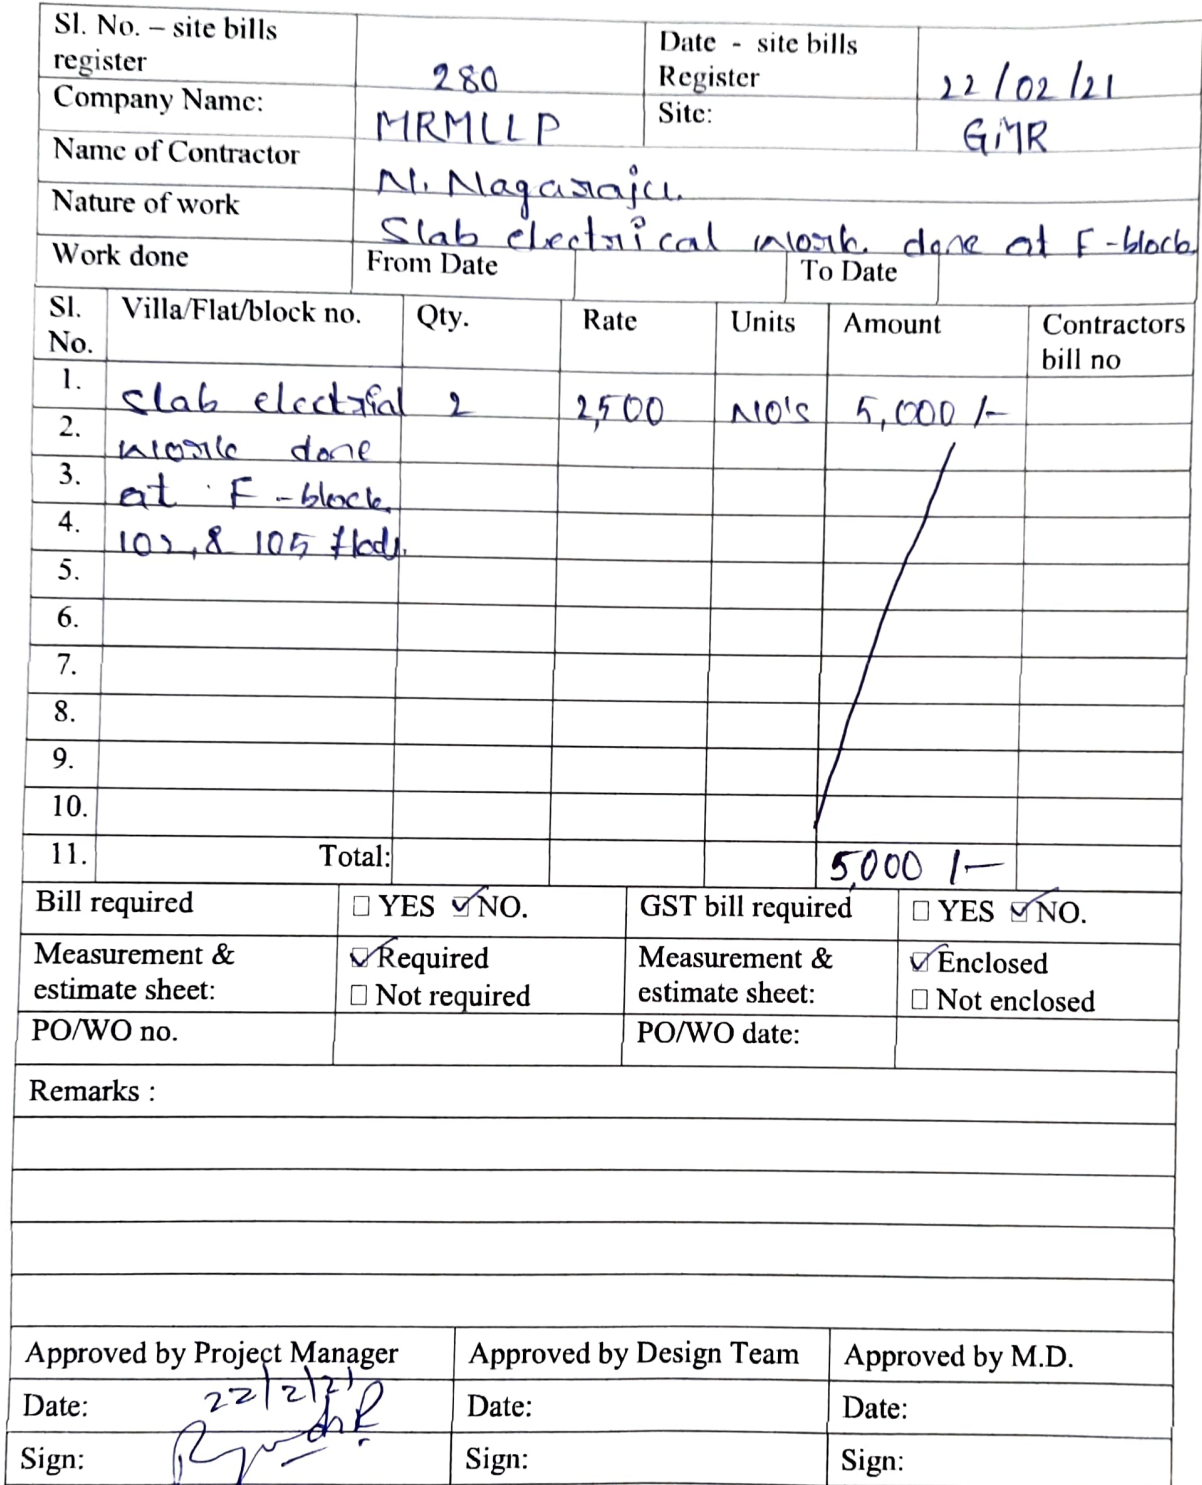 Sl. No. – site bills register 280 Date - site bills Register 22/02/21
Company Name: MRMLLP Site: GMR
Name of Contractor N. Nagaraju.
Nature of work Slab electrical work. done at F-block.
Work done From Date To Date
Sl. No. Villa/Flat/block no. Qty. Rate Units Amount Contractors bill no
1. Slab electrial 2 2,500 NO's 5,000 /-
2. work done
3. at F-block.
4. 102, & 105
5.
6.
7.
8.
9.
10.
11. Total: 5,000 /-
Bill required YES NO. GST bill required YES NO.
Measurement & estimate sheet: Required Measurement & estimate sheet: Enclosed
Not required Not enclosed
PO/WO no. PO/WO date:
Remarks :
Approved by Project Manager Approved by Design Team Approved by M.D.
Date: 22/2/21 Date: Date:
Sign: Sign: Sign: